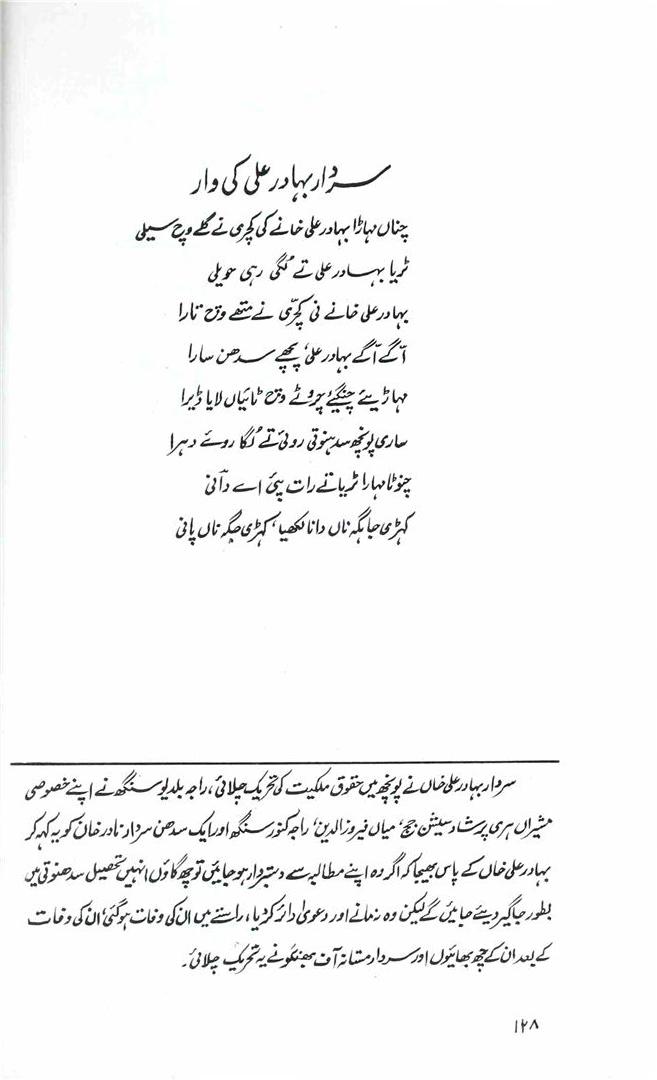 سردار بہادر علی کی وار
چناں مہاڑا بہادر علی خانے کی کچری نے گلے وچ سیلی
ٹریا بہادر علی تے لگی رہی حویلی
بہادر علی خانے نی کچری نے متھے وچ تارا
آگے آگے بہادر علی، پچھے سدھن سارا
مہاڑیئے چنگیئے چروٹے وچ ٹائیاں لایا ڈیرا
ساری پونچھ سدہنوتی روئی تے لگا روئے دہرا
چنوٹا مہارا ٹریا تے رات پئی اے دآنی
کہڑی جاہگہ ناں دانا لکھیا، کہڑی جگہ ناں پانی
سردار بہادر علی خاں نے پونچھ میں حقوق ملکیت کی تحریک چلائی، راجہ بلدیو سنگھ نے اپنے خصوصی
مشیراں ہری پرشاد سیشن جج، میاں فیروز الدین، راجہ کنور سنگھ اور ایک سدھن سردار نادر خان کو یہ کہہ کر
بہادر علی خاں کے پاس بھیجا کہ اگر وہ اپنے مطالبہ سے دستبردار ہو جائیں تو چھ گاؤں انہیں تحصیل سدھنوتی میں
بطور جاگیر دیئے جائیں گے لیکن وہ نہ مانے اور دعویٰ دائر کر دیا، راستے میں ان کی وفات ہو گئی، ان کی وفات
کے بعد ان کے چھ بھائیوں اور سردار مستانہ آف بھنگو نے یہ تحریک چلائی۔
۱۲۸